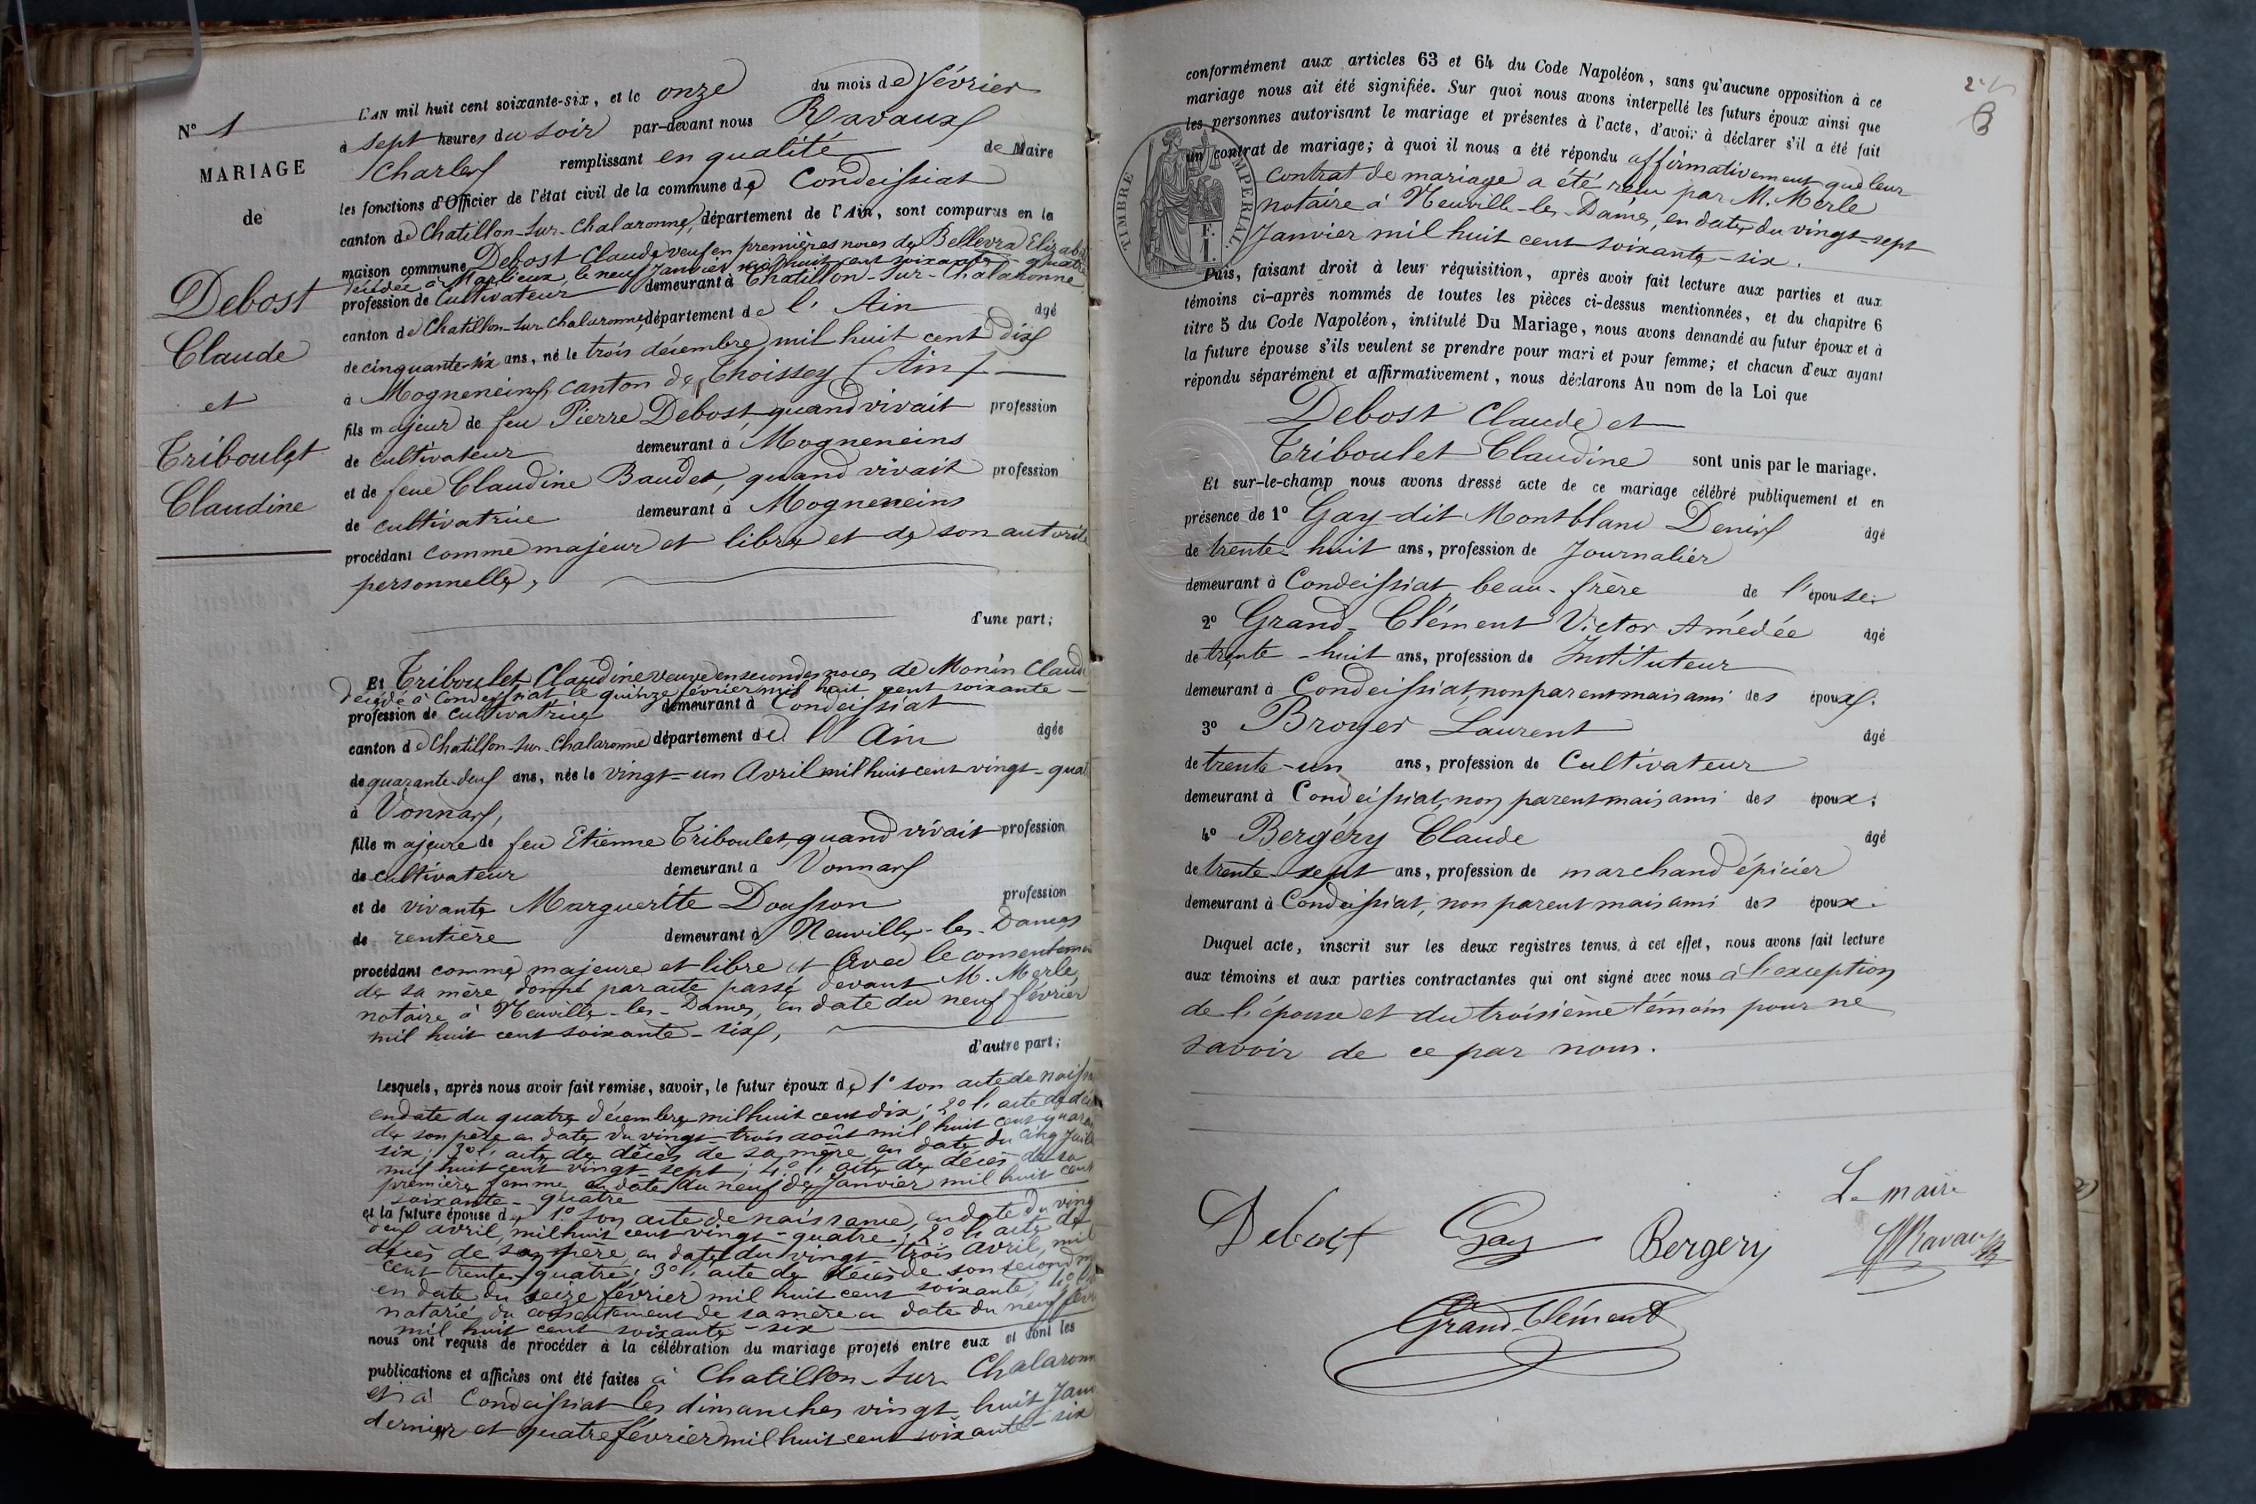 N° 1
MARIAGE
de
Debost
Claude
et
Triboulet
Claudine
L'AN mil huit cent soixante-six, et le onze du mois de février
à sept heures du soir par-devant nous Ravaux
Charles remplissant en qualité de Maire
les fonctions d'Officier de l'état civil de la commune de Condeissiat
canton de Chatillon-sur-Chalaronne, département de l'Ain, sont comparus en la
maison commune Debost Claude veuf en premières noces de Bellevra Elizab
décédée à Marlieux, le neuf Janvier mil huit cent soixante-quatre
profession de Cultivateur demeurant à Chatillon-sur-Chalaronne
canton de Chatillon-sur-Chalaronne département de l'Ain âgé
de cinquante-six ans, né le trois décembre mil huit cent dix
à Mogneneins, canton de Thoissey (Ain)
fils majeur de feu Pierre Debost, quand vivait profession
de cultivateur demeurant à Mogneneins
et de feue Claudine Baudet, quand vivait profession
de cultivatrice demeurant à Mogneneins
procédant comme majeur et libre et de son autorité
personnelle,
d'une part;
Et Triboulet Claudine veuve en secondes noces de Monin Claude
décédé à Condeissiat le quinze février mil huit cent soixante
profession de cultivatrice demeurant à Condeissiat
canton de Chatillon-sur-Chalaronne département de l'Ain âgée
de quarante-deux ans, née le vingt-un Avril mil huit cent vingt-quat
à Vonnas,
fille majeure de feu Etienne Triboulet quand vivait profession
de cultivateur demeurant à Vonnas
et de vivante Marguerite Dousson profession
de rentière demeurant à Neuville-les-Dames
procédant comme majeure et libre et avec le consentem
de sa mère donné par acte passé devant M. Merle
notaire à Neuville-les-Dames, en date du neuf février
mil huit cent soixante-six,
d'autre part;
Lesquels, après nous avoir fait remise, savoir, le futur époux de 1° son acte de naissa
en date du quatre décembre mil huit cent dix; 2° l'acte de décè
de son père en date du vingt-trois août mil huit cent quaran
six; 3° l'acte de décès de sa mère en date du cinq Juill
mil huit cent vingt-sept; 4° l'acte de décès de sa
première femme en date du neuf de Janvier mil huit cent
soixante-quatre
et la future épouse de 1° son acte de naissance, en date du ving
deux avril, mil huit cent vingt-quatre; 2° l'acte de
décès de son père en date du vingt-trois avril, mil
cent trente-quatre; 3° l'acte de décès de son second m
en date du seize février mil huit cent soixante; 4° l'
notarié du consentement de sa mère en date du neuf févr
mil huit cent soixante-six
nous ont requis de procéder à la célébration du mariage projeté entre eux et dont les
publications et affiches ont été faites à Chatillon-sur-Chalaronn
et à Condeissiat les dimanches vingt-huit Janv
dernier et quatre février mil huit cent soixante-six
conformément aux articles 63 et 64 du Code Napoléon, sans qu'aucune opposition à ce
mariage nous ait été signifiée. Sur quoi nous avons interpellé les futurs époux ainsi que
les personnes autorisant le mariage et présentes à l'acte, d'avoir à déclarer s'il a été fait
un contrat de mariage; à quoi il nous a été répondu affirmativement que leur
contrat de mariage a été reçu par M. Merle
notaire à Neuville-les-Dames, en date du vingt-sept
Janvier mil huit cent soixante-six.
TIMBRE IMPERIAL
Puis, faisant droit à leur réquisition, après avoir fait lecture aux parties et aux
témoins ci-après nommés de toutes les pièces ci-dessus mentionnées, et du chapitre 6
titre 5 du Code Napoléon, intitulé Du Mariage, nous avons demandé au futur époux et à
la future épouse s'ils veulent se prendre pour mari et pour femme; et chacun d'eux ayant
répondu séparément et affirmativement, nous déclarons Au nom de la Loi que
Debost Claude et
Triboulet Claudine sont unis par le mariage.
Et sur-le-champ nous avons dressé acte de ce mariage célébré publiquement et en
présence de 1° Gay dit Montblanc Denis âgé
de trente-huit ans, profession de Journalier
demeurant à Condeissiat beau-frère de l'épouse;
2° Grand-Clément Victor Amédée âgé
de trente-huit ans, profession de Instituteur
demeurant à Condeissiat, non parent mais ami des époux.
3° Broyer Laurent âgé
de trente-un ans, profession de Cultivateur
demeurant à Condeissiat, non parent mais ami des époux;
4° Bergéry Claude âgé
de trente-sept ans, profession de marchand épicier
demeurant à Condeissiat, non parent mais ami des époux.
Duquel acte, inscrit sur les deux registres tenus à cet effet, nous avons fait lecture
aux témoins et aux parties contractantes qui ont signé avec nous à l'exception
de l'épouse et du troisième témoin pour ne
savoir de ce par nous.
Le maire
Debost Gay Bergery Ravaux
Grand-Clément